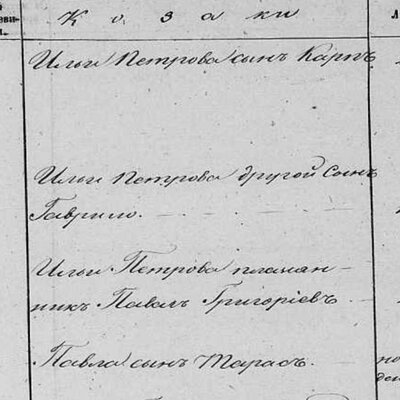 Козаки
Ильи Петрова сынъ Карпъ
Ильи Петрова другой сынъ
Гаврило.
Ильи Петрова племян-
никъ Павелъ Григоріевъ
Павла сынъ Тарасъ.